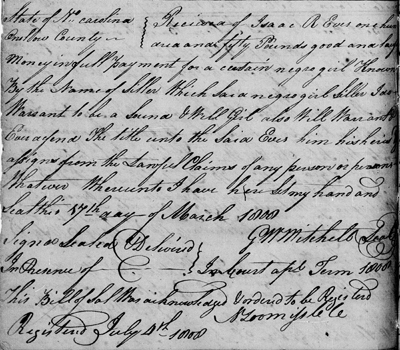 State of No. carolina
Onslow County
Received of Isaac R Eves one hun
dred and fifty Pounds good and law
Money in full payment for a certain negro girl Known
By the Name of Siller Which said negro girl Siller I do
Warrant to be a Sound & Well Girl also Will Warrant &
Ever defend The title unto the Said Eves him his heirs
assigns from the Lawful Claims of any person or persons
Whatever Whereunto I have here set my hand and
Seal this 17th day of March 1808
Signed Sealed & Delivered
In Presence of
G W Mitchell Seal
In Court apl. Term 1808
This Bill of Sal Was acknowledged & ordered to be Registerd
Registerd July 4th 1808